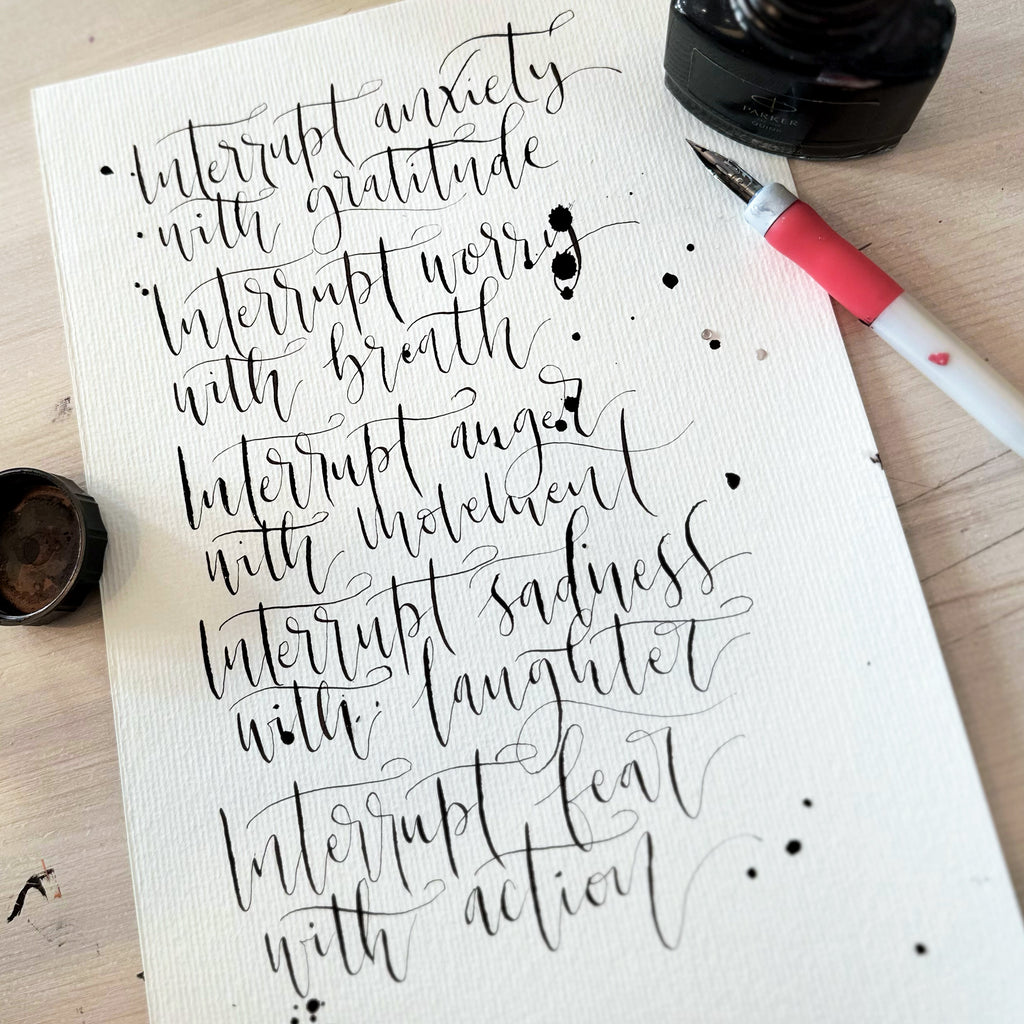 Interrupt anxiety
with gratitude
Interrupt worry
with breath
Interrupt anger
with movement
Interrupt sadness
with laughter
Interrupt fear
with action
PARKER
QUINK